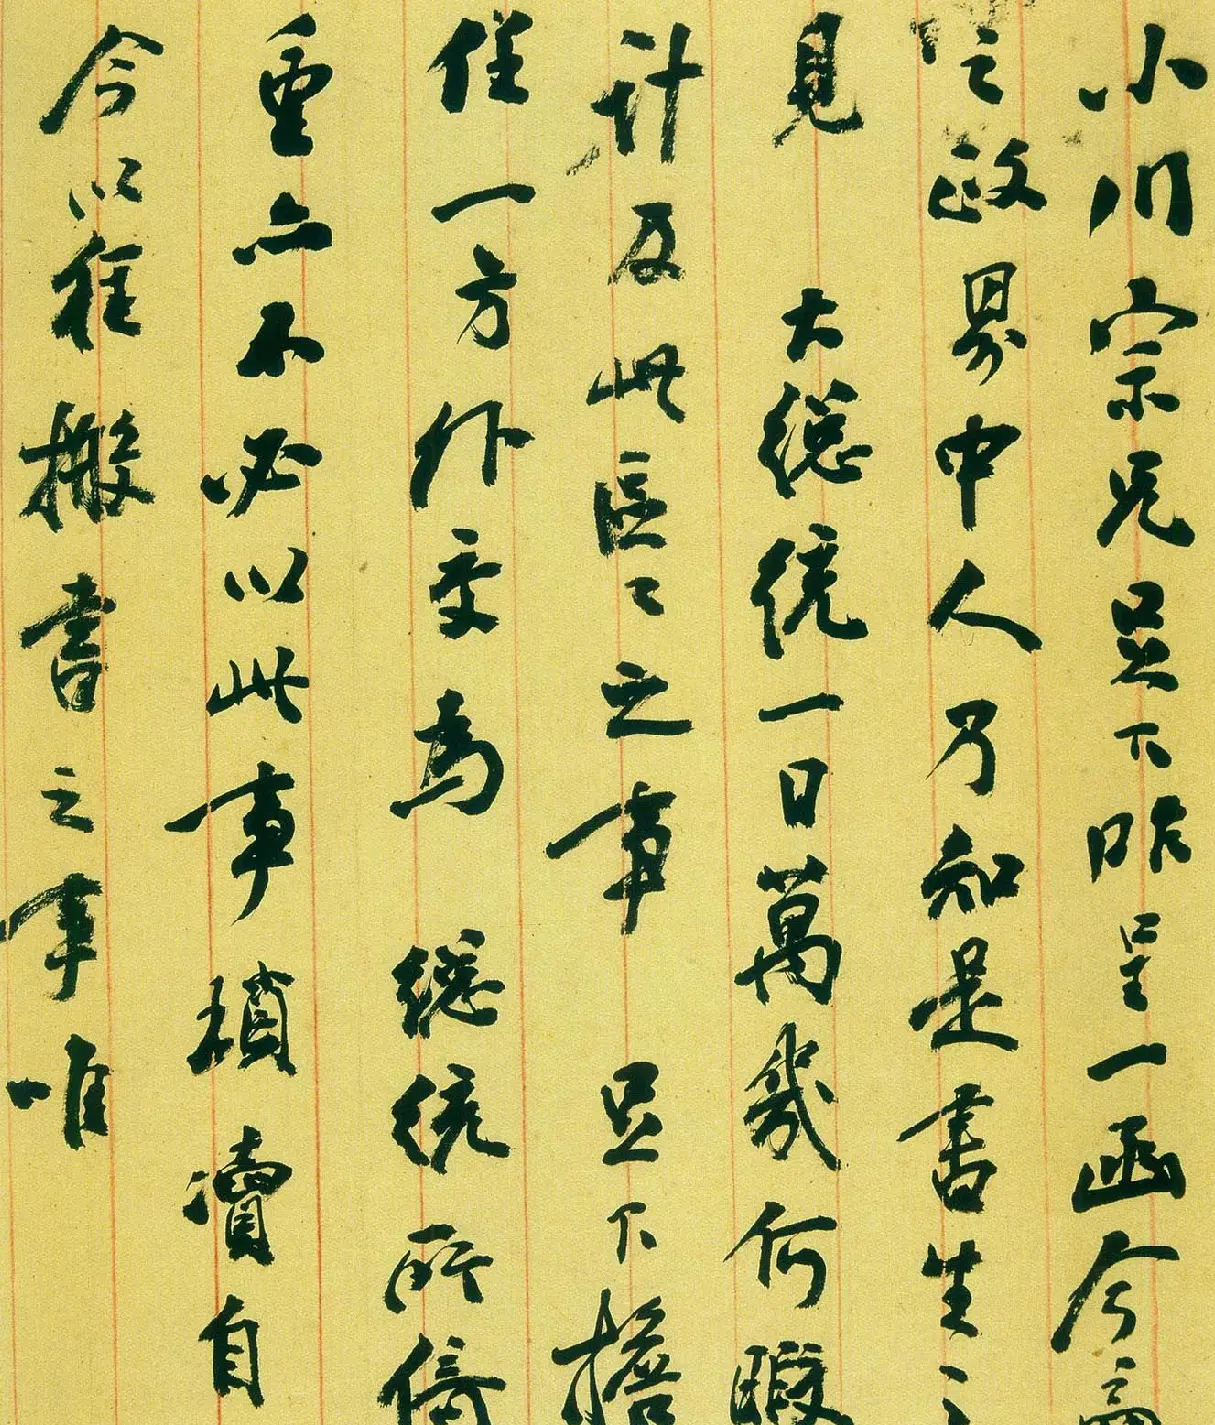 小川宗兄足下昨呈一函今之
之政界中人乃知是書生之
見 大總統一日萬幾何暇
計及此區區之事 足下擔
任一方外交為 總統所倚
重亦不必以此事瑣瀆自
今以往搬書之事唯